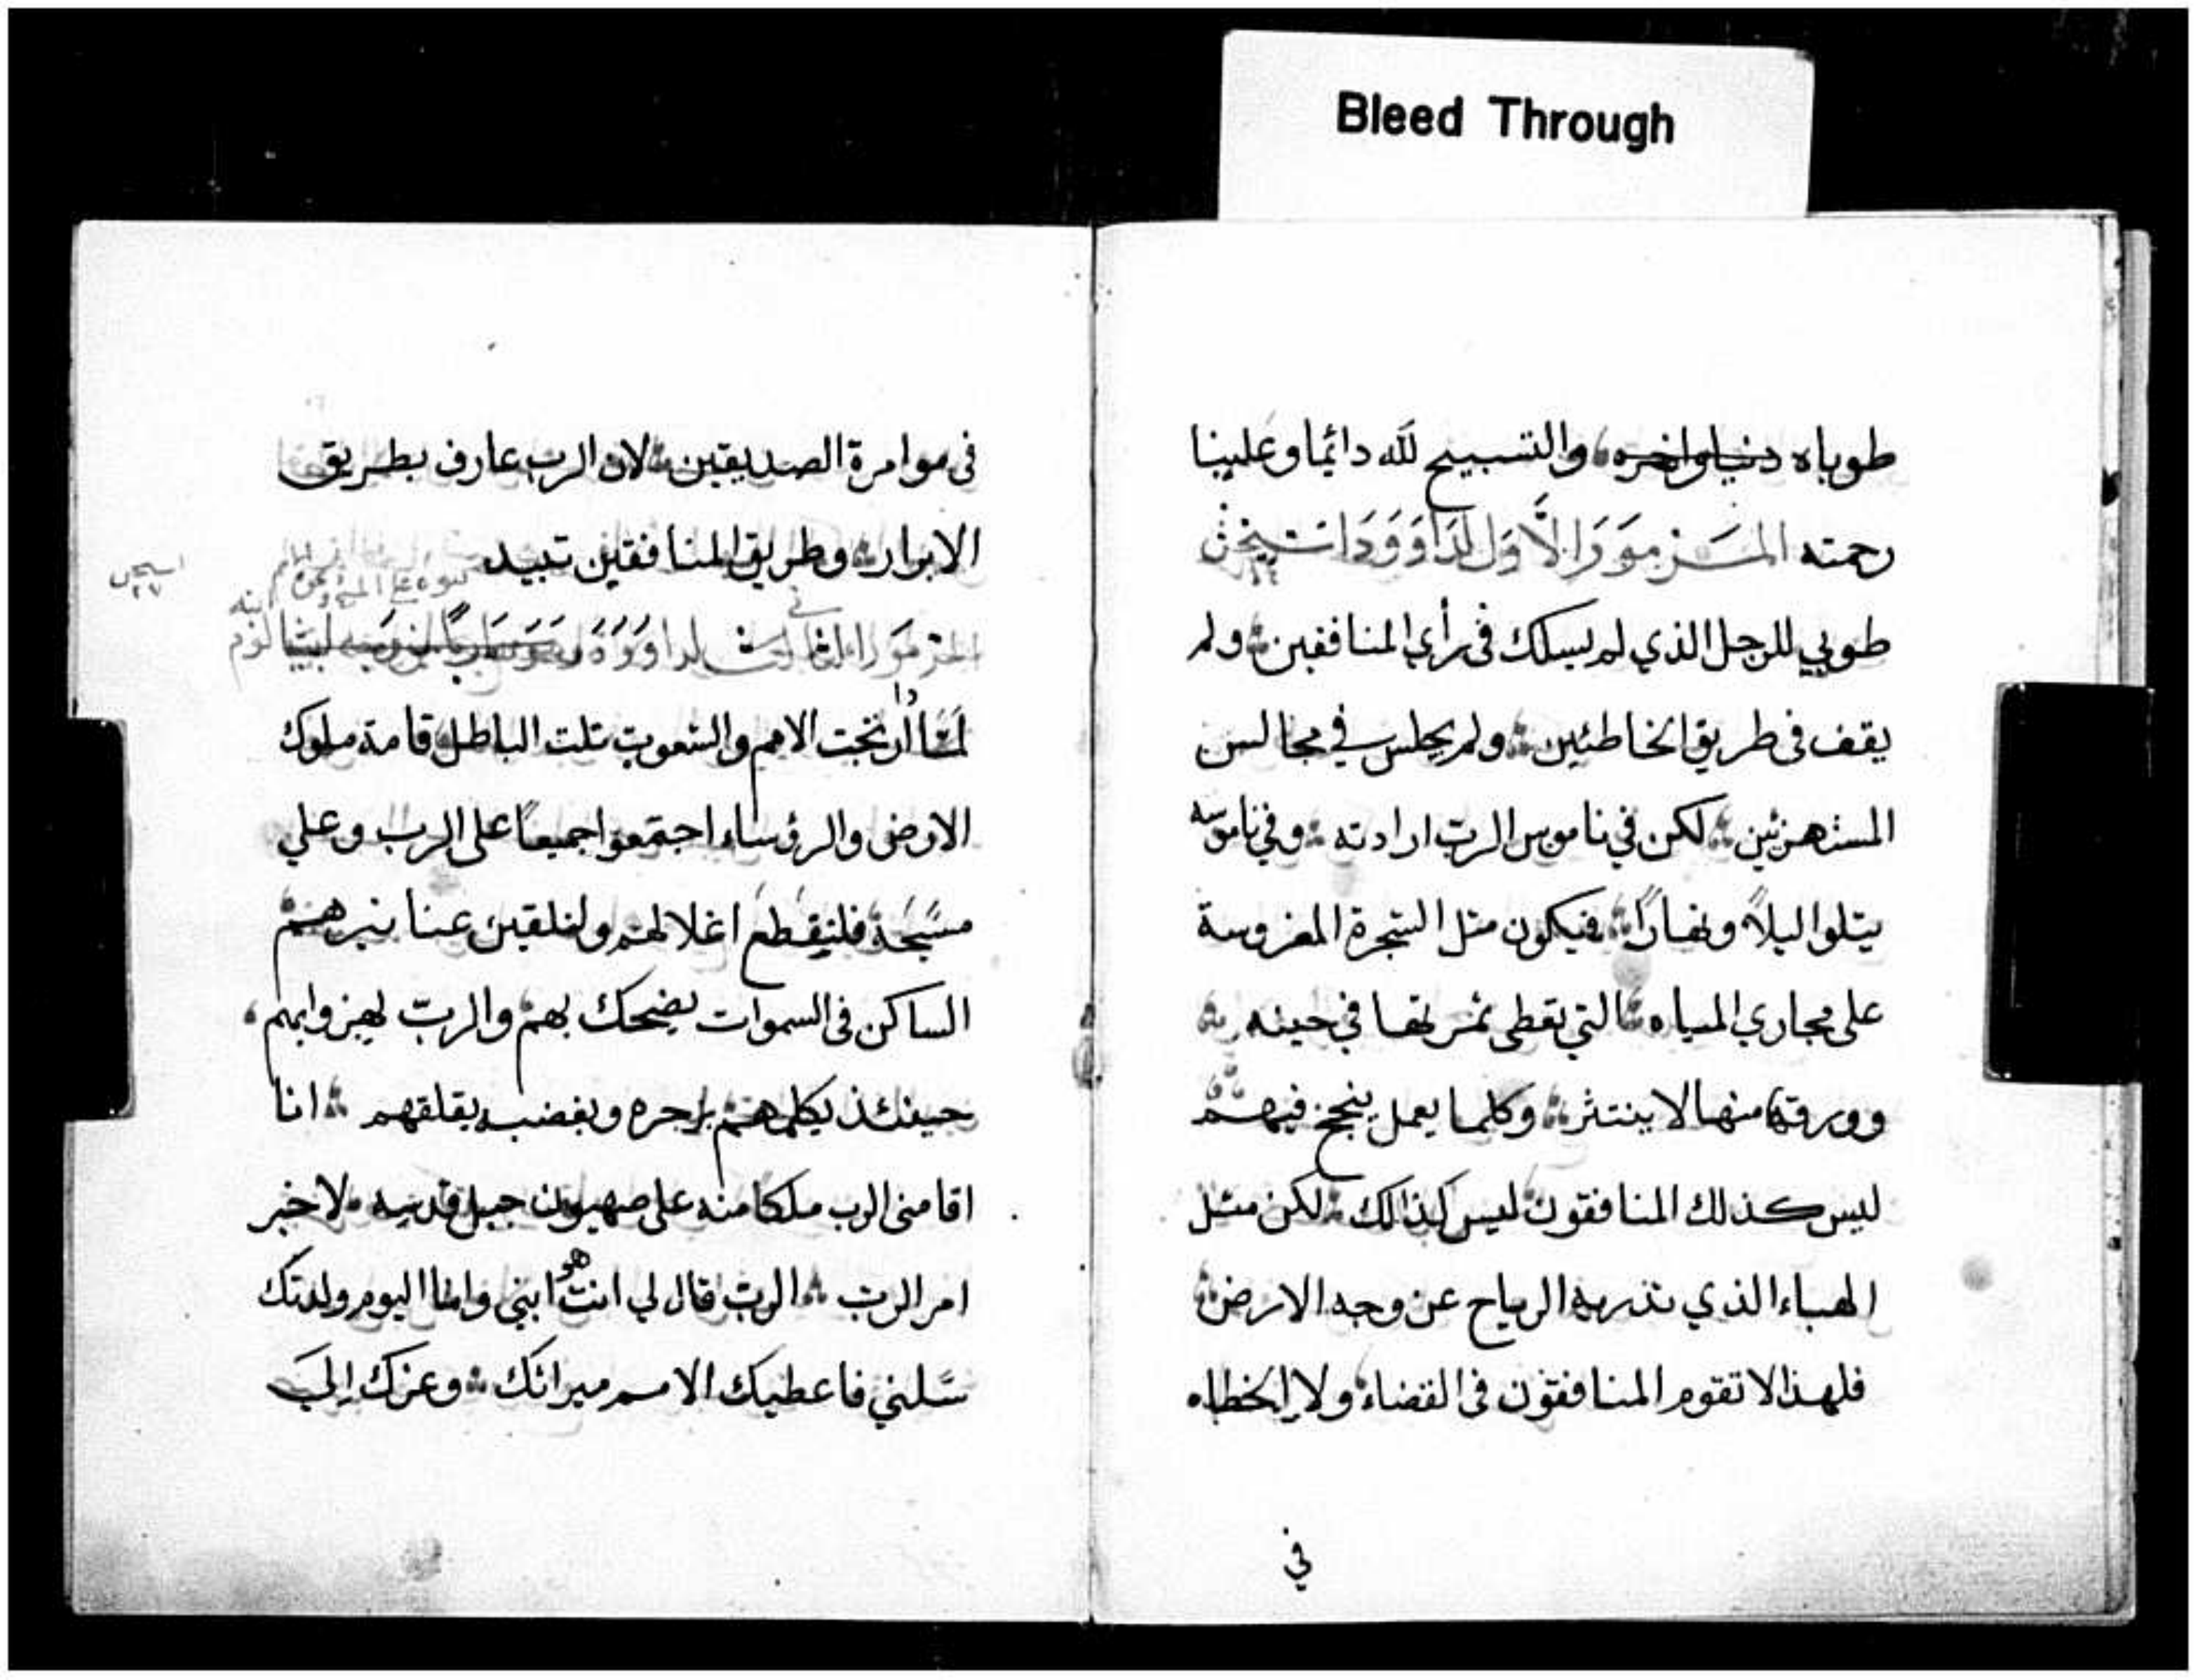 Bleed Through
طوباه دنيا واخره والتسبيح لله دائما وعلينا
رحمته المزمور الاول لداوود
طوبي للرجل الذي لم يسلك في راي المنافقين ولم
يقف في طريق الخاطئين ولم يجلس في مجالس
المستهزئين لكن في ناموس الرب ارادته وفي ناموسه
يتلوا ليلاً ونهاراً فيكون مثل الشجرة المغروسة
على مجاري المياه التي تعطى ثمرتها في حينه
وورقها منها لا ينتثر وكلما يعمل ينجح فيهم
ليس كذلك المنافقون ليس كذالك لكن مثل
الهباء الذي تذريه الرياح عن وجه الارض
فلهذا لا تقوم المنافقون في القضاء ولا الخطاه
في
في موامرة الصديقين لان الرب عارف بطريق
الابرار وطريق المنافقين تبيد
المزمور الثاني لداوود
لماذا ارتجت الامم والشعوب تلت الباطل قامة ملوك
الارض والرؤساء اجتمعوا جميعاً على الرب وعلي
مسيحة فلنقطع اغلالهم ولنلقين عنا نيرهم
الساكن في السموات يضحك بهم والرب يهزوا بهم
حينئذ يكلمهم برجزه وبغضبه يقلقهم انا
اقامني الرب ملكا منه على صهيون جبل قدسه لاخبر
امر الرب الرب قال لي انت هو ابني وانا اليوم ولدتك
سلني فاعطيك الامم ميراثك وعزك الي